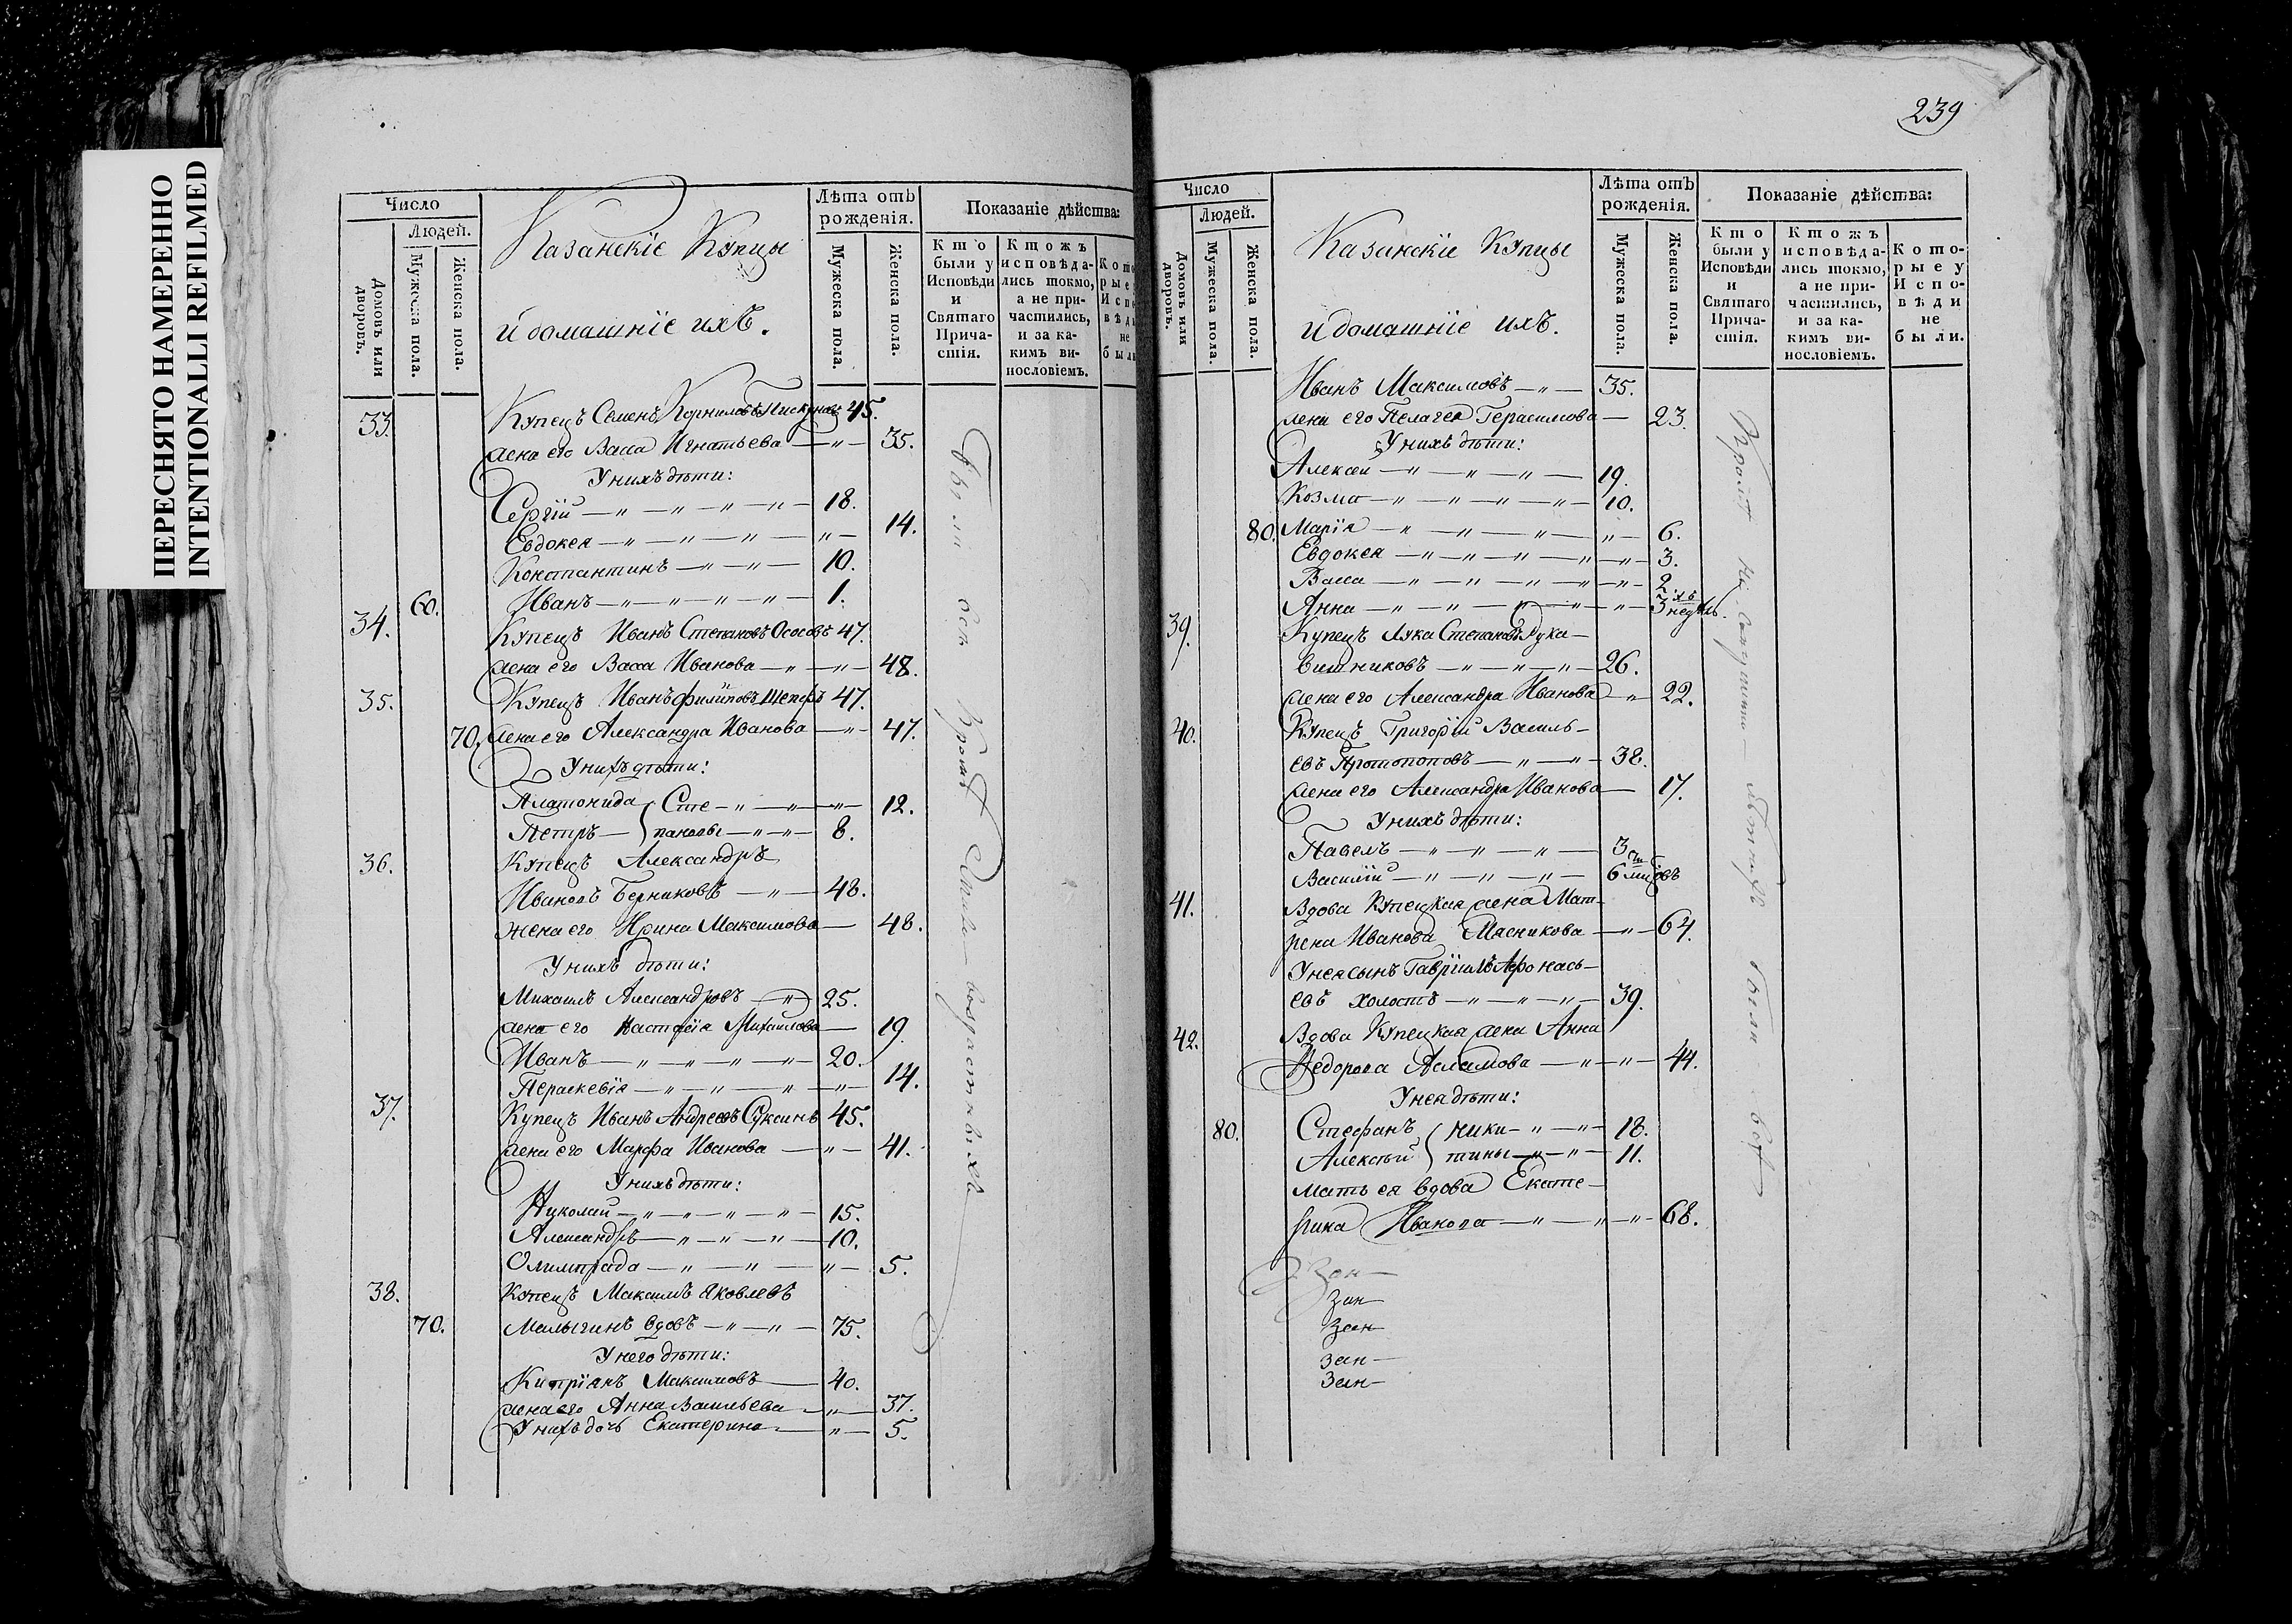 ПЕРЕСНЯТО НАМЕРЕННО
INTENTIONALLI REFILMED
Число
Людей.
Домовъ или дворовъ.
Мужеска пола.
Женска пола.
Казанскіе Купцы
и домашніе ихъ.
Лѣта отъ рожденія.
Мужеска пола.
Женска пола.
Показаніе дѣйства:
Кто были у Исповѣди и Святаго Причастія.
Ктожъ исповѣдались токмо, а не причастились, и за какимъ винословіемъ.
33. Купецъ Семенъ Корниловъ Пискуновъ 45.
жена его Васса Игнатьева 35.
У нихъ дѣти:
Сергій 18.
Евдокея 14.
Константинъ 10.
60. Иванъ 1.
34. Купецъ Иванъ Степановъ 47.
жена его Васса Иванова 48.
35. Купецъ Иванъ Филиповъ 47.
70. жена его Александра Иванова 47.
У нихъ дѣти:
Платонида Сте- 12.
Петръ пановы 8.
36. Купецъ Александръ
Ивановъ Берниковъ 48.
жена его Ирина Максимова 48.
У нихъ дѣти:
Михаилъ Александровъ 25.
жена его Настасія Михаилова 19.
Иванъ 20.
Пераскевія 14.
37. Купецъ Иванъ Андреевъ Суксинъ 45.
жена его Марфа Иванова 41.
У нихъ дѣти:
Николай 15.
Александръ 10.
Олимпіада 5.
38. Купецъ Максимъ Яковлевъ
70. Малыгинъ вдовъ 75.
У него дѣти:
Кипріанъ Максимовъ 40.
жена его Анна Васильева 37.
У нихъ дочь Екатерина 5.
239
Число
Людей.
Домовъ или дворовъ.
Мужеска пола.
Женска пола.
Казанскіе Купцы
и домашніе ихъ.
Лѣта отъ рожденія.
Мужеска пола.
Женска пола.
Показаніе дѣйства:
Кто были у Исповѣди и Святаго Причастія.
Ктожъ исповѣдались токмо, а не причастились, и за какимъ винословіемъ.
Которые у Исповѣди не были.
Иванъ Максимовъ 35.
жена его Пелагея Герасимова 23.
У нихъ дѣти:
Алексей 19.
Козма 10.
80. Марія 6.
Евдокея 3.
Васса 2.
Анна 3 недѣль.
39. Купецъ Лука Степановъ Рука-
вишниковъ 26.
жена его Александра Иванова 22.
40. Купецъ Григорій Василь-
евъ Протопоповъ 38.
жена его Александра Иванова 17.
У нихъ дѣти:
Павелъ 3
Василій 6 мцовъ
41. Вдова Купецкая жена Мат-
рена Иванова Мясникова 64.
У нея сынъ Гавріилъ Афонась-
евъ холостъ 39.
42. Вдова Купецкая жена Анна
Федорова Асламова 44.
У нея дѣти:
80. Стефанъ ники- 18.
Алексѣй тины 11.
Мать ея вдова Екате-
рина Иванова 68.